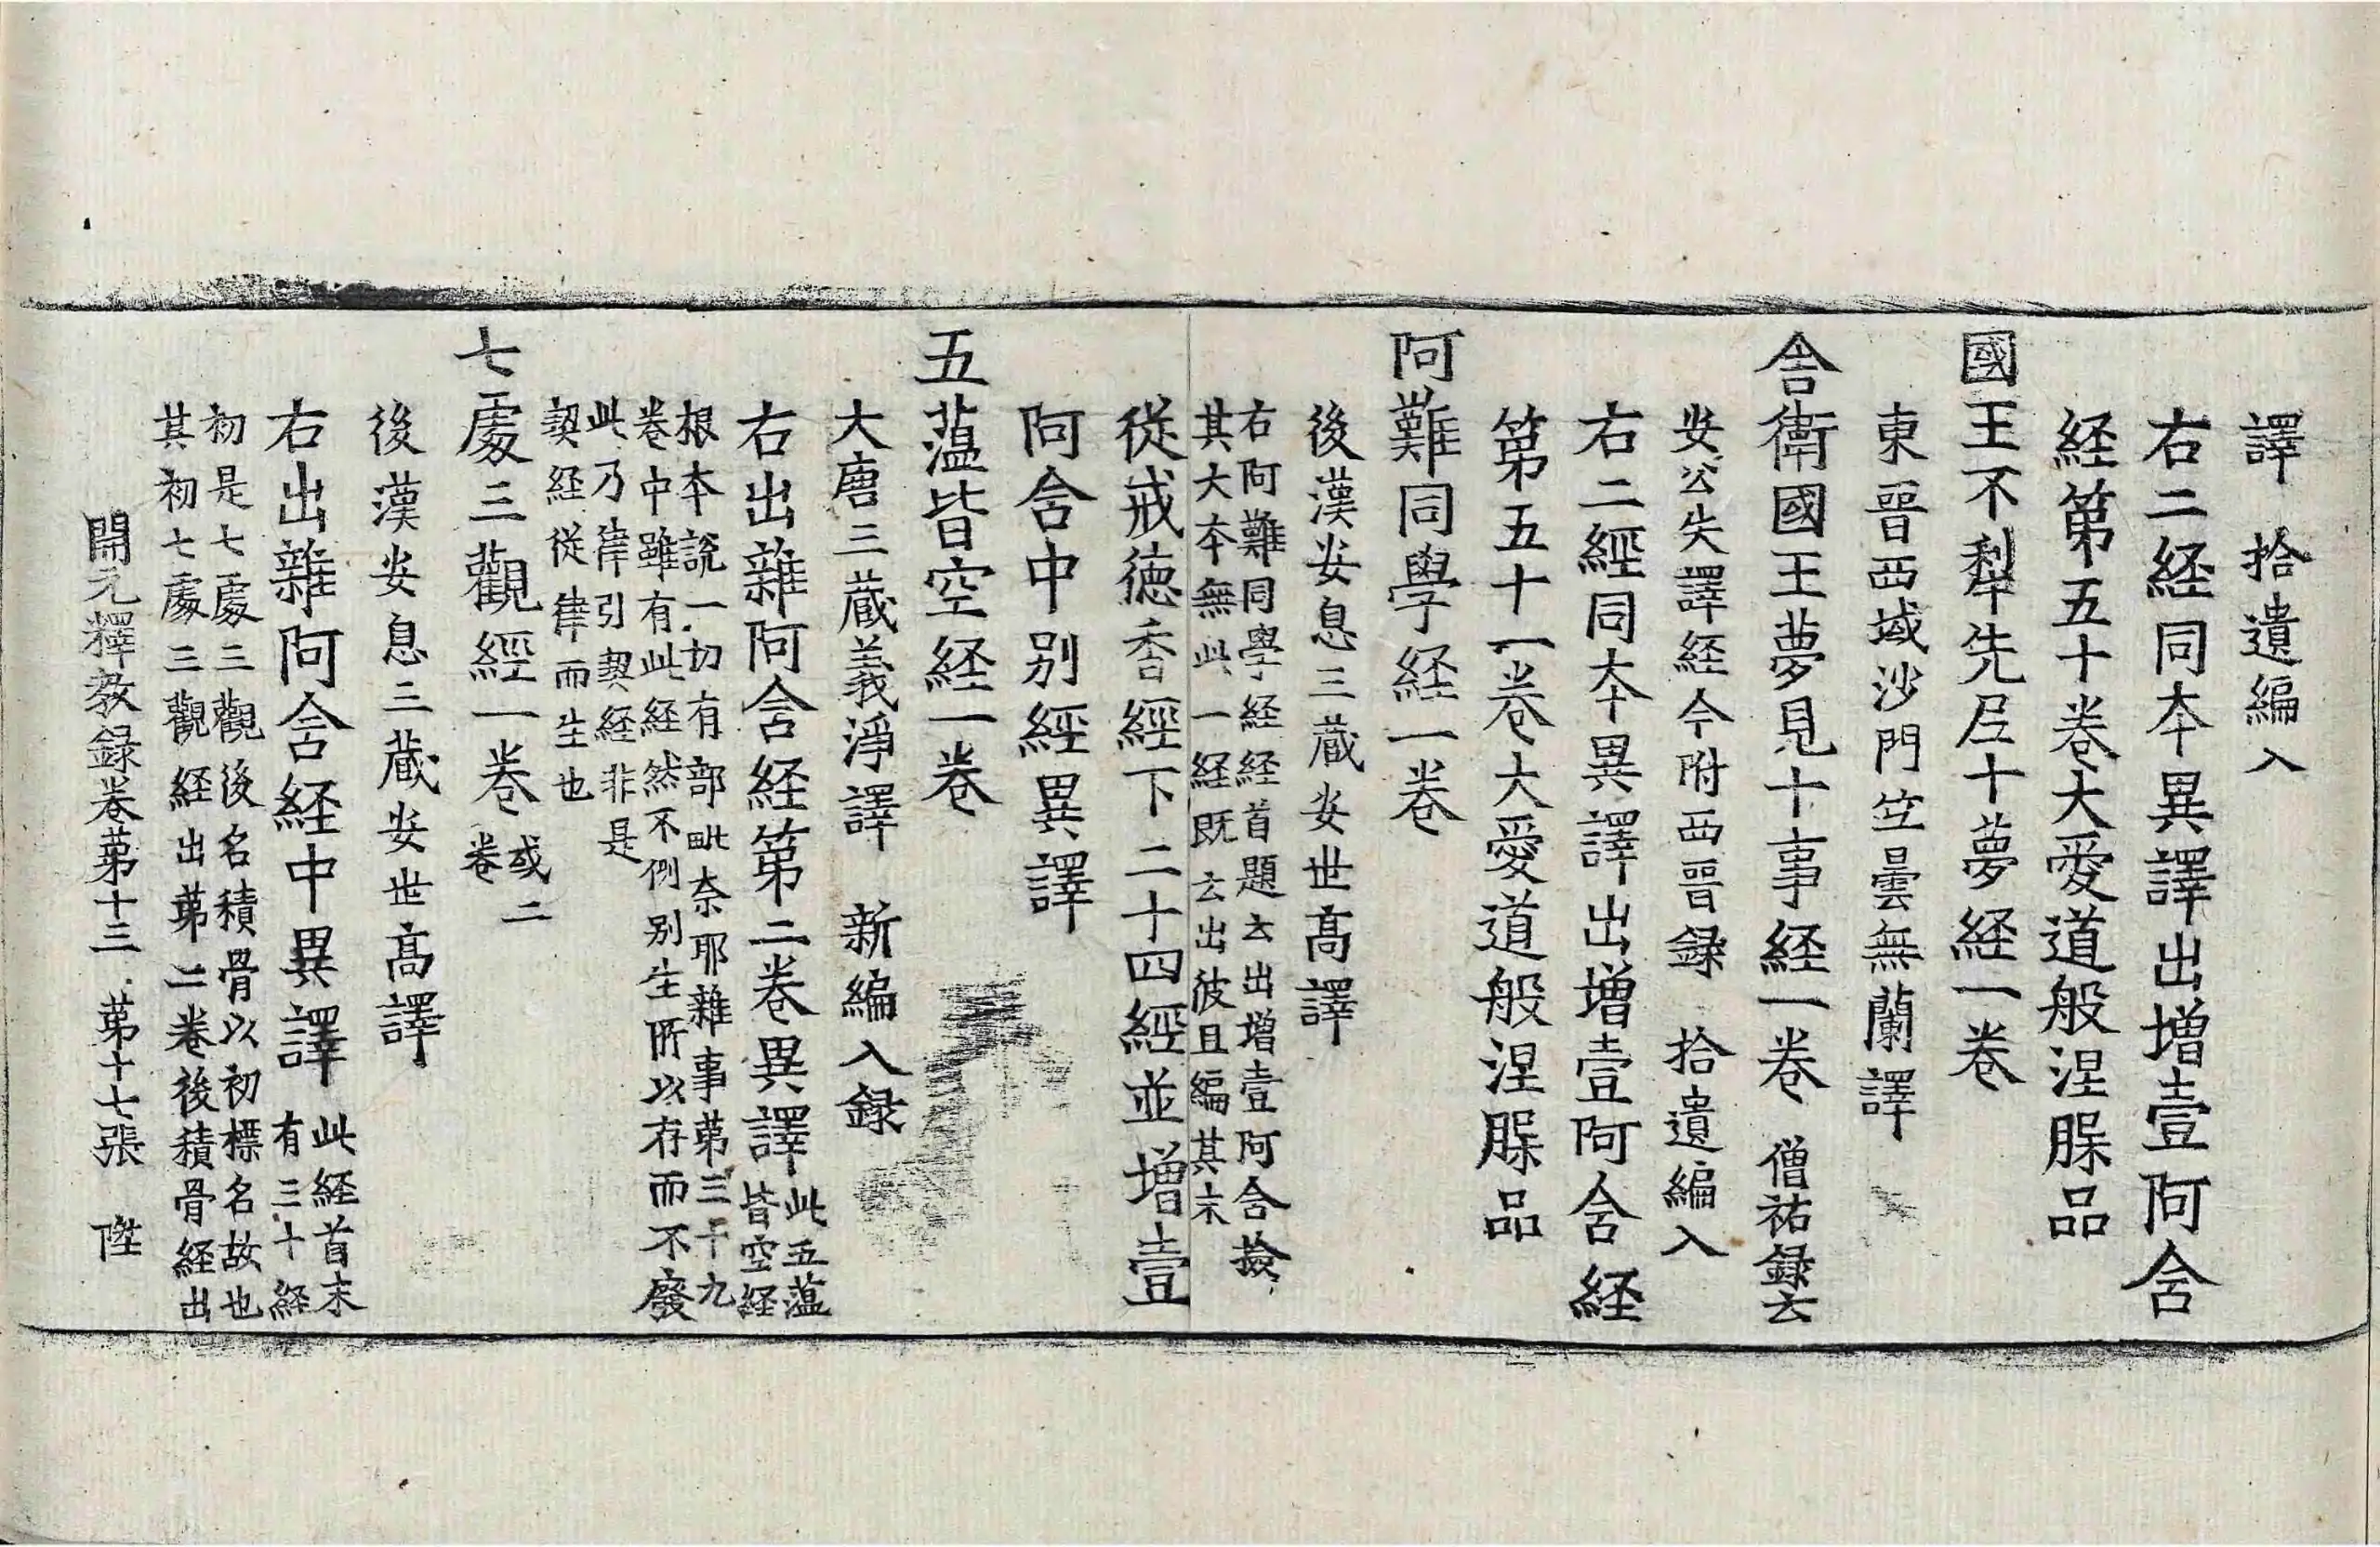 譯　拾遺編入
右二経同夲異譯出増壹阿含
経第五十卷大愛道般涅脵品
國王不犁先尼十夢経一卷
東晉西域沙門竺曇無蘭譯
舎衛國王夢見十事経一卷　僧祐録云
安公失譯経今附西晉録　拾遺編入
右二經同夲異譯出増壹阿含経
第五十一卷大愛道般涅脵品
阿難同學経一卷
後漢安息三蔵安世髙譯
右阿難同學経経首題云出増壹阿含撿
其大夲無此一経既云出彼且編其末
従戒徳香經下二十四經並増壹
阿含中别經異譯
五蕰皆空経一卷
大唐三蔵義淨譯　新編入録
右出雜阿含経第二卷異譯此五蕰
皆空経
根夲說一切有部毗奈耶雜事苐三十九
卷中雖有此経然不例别生所以存而不廢
此乃律引契経非是
契経従律而生也
七處三觀經一卷或二
卷
後漢安息三蔵安世髙譯
右出雜阿含経中異譯此経首末
有三十経
初是七處三觀後名積骨以初標名故也
其初七處三觀経出苐二卷後積骨経出
開元釋教録卷苐十三　苐十七張　陞